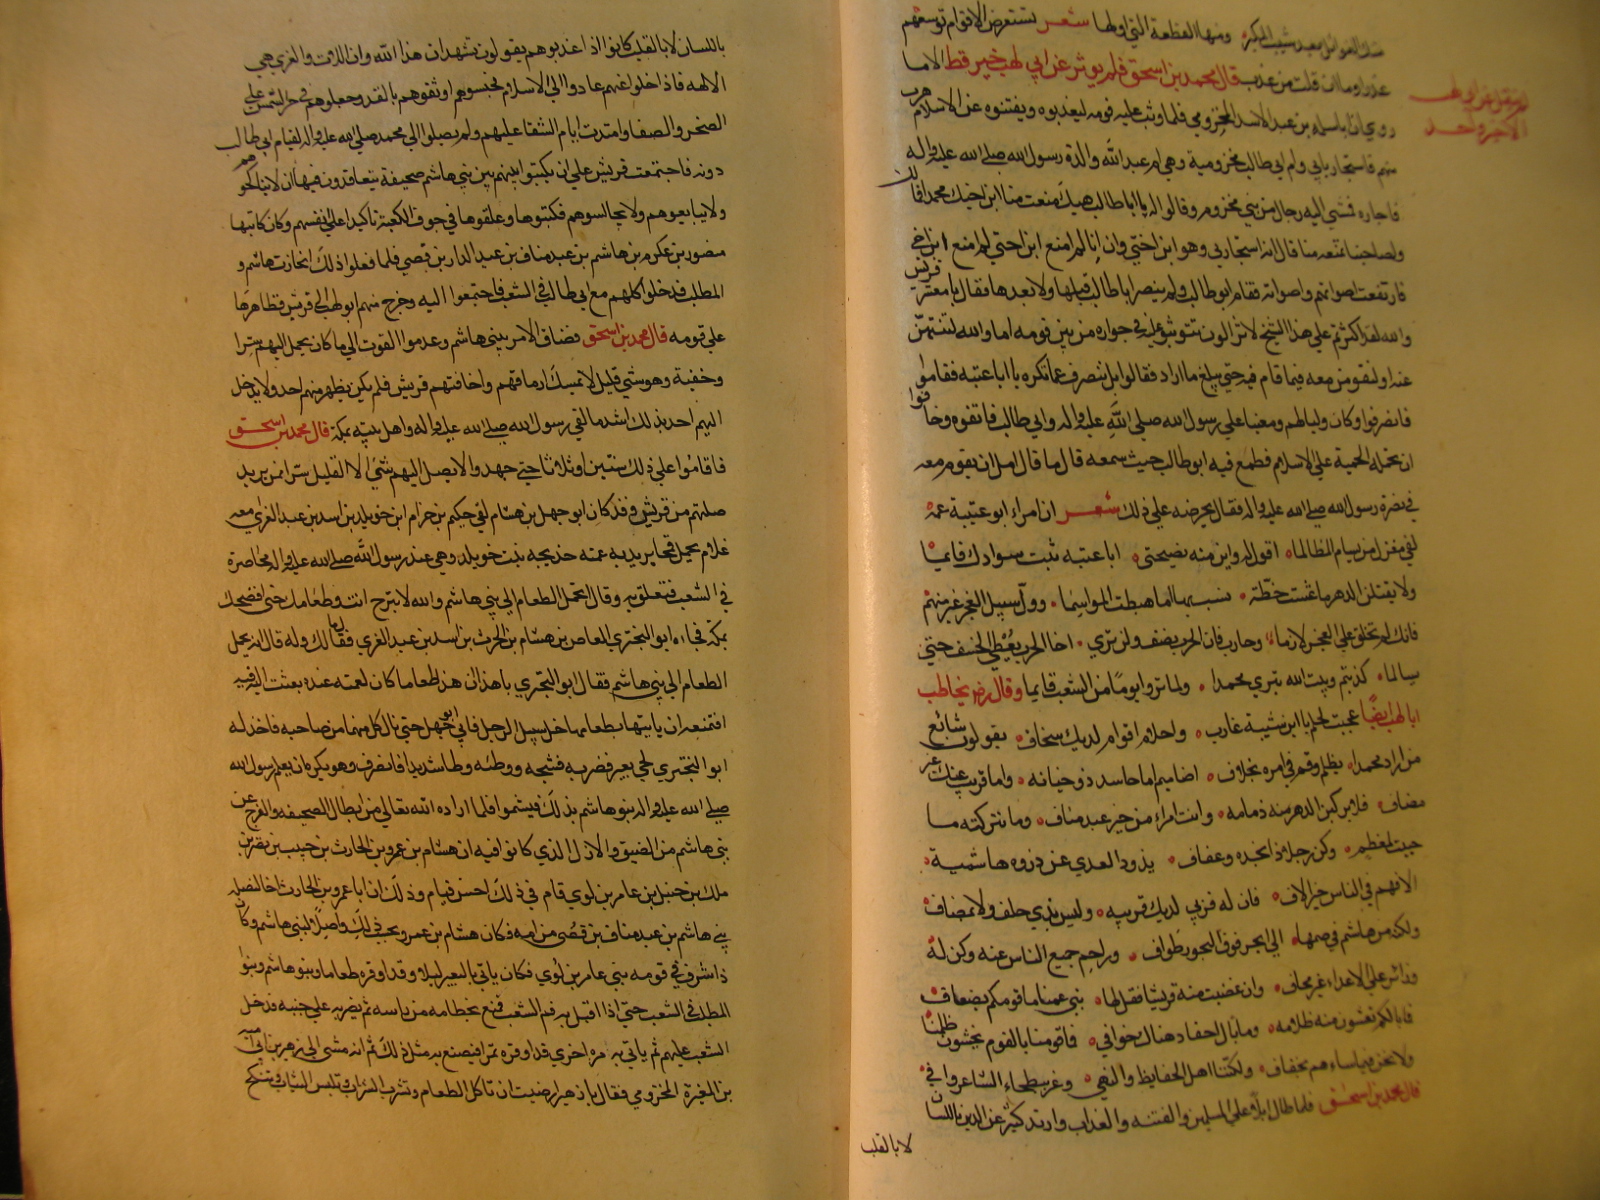 ومنها القطعة التي اولها شعر تستعرض الاقوام توسعهم
عذرا وما ان قلت من عذب قال محمد بن اسحق فلم يوثر عن ابي لهب خير قط الا ما
روي ان ابا سلمة بن عبد الاسد المخزومي لما وثب عليه قومه ليعذبوه ويفتنوه عن الاسلام هرب
منهم فاستجار بابي طالب وام ابي طالب مخزومية وهي ام عبد الله والدة رسول الله صلى الله عليه واله
فاجاره فمشى اليه رجال من بني مخزوم وقالوا له يا ابا طالب هبك منعت منا ابن اخيك محمدا فما لك
ولصاحبنا تمنعه منا قال انه استجار بي وهو ابن اختي وان انا لم امنع ابن اختي لم امنع ابن اخي
فارتفعت اصواتهم واصواته فقام ابو لهب ولم ينصر ابا طالب قبلها ولا بعدها فقال يا معشر قريش
والله لقد اكثرتم على هذا الشيخ لا تزالون تتوثبون عليه في جواره من بين قومه اما والله لتنتهن
عنه او لنقومن معه فيما قام فيه حتى يبلغ ما اراد فقالوا بل ننصرف عما تكره يا ابا عتبة فقاموا
فانصرفوا وكان وليا لهم ومعينا على رسول الله صلى الله عليه واله وابي طالب فاتقوه وخافوا
ان تحمله الحمية على الاسلام فطمع فيه ابو طالب حيث سمعه قال ما قال وامل ان يقوم معه
في نصرة رسول الله صلى الله عليه واله فقال يحرضه على ذلك شعر ان امراء ابو عتيبة عمه
لفي معزل من ان يسام المظالما اقول له واين منه نصيحتي ابا عتبه ثبت سوادك قايما
ولا يقبلن الدهر ما عشت خطة تسب بها اما هبطت المواسما وول سبيل العجز غيرك منهم
فانك لم تخلق على العجز لازما وحارب فان الحرب نصف ولن ترى اخا الحرب يعطى الخسف حتى
يسالما كذبتم وبيت الله نبزي محمدا ولما تروا يوما من الشعب قايما وقال رض يخاطب
ابا لهب ايضا عجبت لحلم يا ابن شيبة عازب واحلام اقوام لديك سخاف يقولون شائع
من اراد محمدا بظلم وقم في امره بخلاف اضاميم اما حاسد ذو خيانه واما قريب عنك غير
مصاف فلا تركبن الدهر منه ذمامه وانت امراء من خير عبد مناف وما تتركنه ما
حييت لمعظم وكن رجلا ذا نجده وعفاف يذود العدى عن ذروه هاشمية
الافهم في الناس خير الاف فان له قربى لديك قريبه وليس بذي حلف ولا بمضاف
ولكنه من هاشم في صميمها الى ابحر فوق البحور طواف وزاحم جميع الناس عنه وكن له
وزائر على الاعداء غير مجاف وان غضبت منه قريش فقل لها بني عمنا ما قومكم بضعاف
فما بالكم تغشون منه ظلامه وما بال احقاد هناك خوافي فما قومنا بالقوم يخشون ظلمنا
ولا نحن فيما ساءهم بخفاف ولكننا اهل الحفايظ والنهى وعز ببطحاء المشاعر وافي
قال محمد بن اسحق فلما طال البلاء على المسلمين والفتنه والعذاب وارتد كثير عن الدين باللسان
لا بالقلب
باللسان لا بالقلب كانوا اذا عذبوهم يقولون نشهد ان هذا الله وان اللات والعزى هي
الالهه فاذا خلوا عنهم عادوا الى الاسلام فحبسوهم واوثقوهم بالقد وجعلوهم في حر الشمس على
الصخر والصفا وامتدت ايام الشقا عليهم ولم يصلوا الى محمد صلى الله عليه واله لقيام ابي طالب
دونه فاجتمعت قريش على ان يكتبوا بينهم وبين بني هاشم صحيفة يتعاقدون فيها ان لا يناكحوهم
ولا يبايعوهم ولا يجالسوهم فكتبوها وعلقوها في جوف الكعبة تاكيدا على انفسهم وكان كاتبها
منصور بن عكرمه بن هاشم بن عبد مناف بن عبد الدار بن قصي فلما فعلوا ذلك انحازت هاشم و
المطلب فدخلوا كلهم مع ابي طالب في الشعب فاجتمعوا اليه وخرج منهم ابو لهب الى قريش فظاهرها
على قومه قال محمد بن اسحق فضاق الامر ببني هاشم وعدموا القوت الا ما كان يحمل اليهم سرا
وخفية وهو شي قليل لا يمسك ارماقهم واخافتهم قريش فلم يكن يظهر منهم احد ولا يدخل
اليهم احد وذلك اشد ما لقي رسول الله صلى الله عليه واله واهل بيته بمكة قال محمد بن اسحق
فاقاموا على ذلك سنتين او ثلاثا حتى جهدوا لا يصل اليهم شئ الا القليل سرا ممن يريد
صلتهم من قريش وقد كان ابو جهل بن هشام لقي حكيم بن حزام ابن خويلد بن اسد بن عبد العزى معه
غلام يحمل قمحا يريد به عمته خديجه بنت خويلد وهي عند رسول الله صلى الله عليه واله محاصرة
في الشعب فتعلق به وقال اتحمل الطعام الى بني هاشم والله لا تبرح انت وطعامك حتى افضحك
بمكة فجاءه ابو البختري العاص بن هشام بن الحرث بن اسد بن عبد العزى فقال ما لك وله قال انه يحمل
الطعام الى بني هاشم فقال ابو البختري يا هذا ان هذا طعاما كان لعمته عنده بعثت اليه فيه
افتمنعه ان ياتيها بطعامها خل سبيل الرجل فابى ابو جهل حتى نال كل منهما من صاحبه فاخذ له
ابو البختري لحي بعير فضربه فشجه ووطئه وطا شديدا فانصرف وهو يكره ان يعلم رسول الله
صلى الله عليه واله وبنو هاشم بذلك فيشمتوا فلما اراد الله تعالى من ابطال الصحيفه والفرج عن
بني هاشم من الضيق والازل الذي كانوا فيه ان هشام بن عمرو بن الحارث بن حبيب بن نصر بن
ملك بن حنبل بن عامر بن لوي قام في ذلك احسن قيام وذلك ان ابا عمرو بن الحارث اخا لنضله
بن هاشم بن عبد مناف بن قصي من امه فكان هشام بن عمرو يحب في ذلك واصلا لبني هاشم وكان
ذا شرف في قومه بني عامر بن لوي فكان ياتي بالبعير ليلا وقد اوقره طعاما وبنو هاشم وبنو
المطلب في الشعب حتى اذا اقبل به فم الشعب فنع بخطامه من راسه ثم يضربه على جنبه فدخل
الشعب عليهم ثم ياتي به مره اخرى قد اوقره تمرا فيصنع به مثل ذلك ثم انه مشى الى زهير بن ابي اميه
بن المغيرة المخزومي فقال يا زهير ارضيت ان تاكل الطعام وتشرب الشراب وتلبس الثياب وتنكح